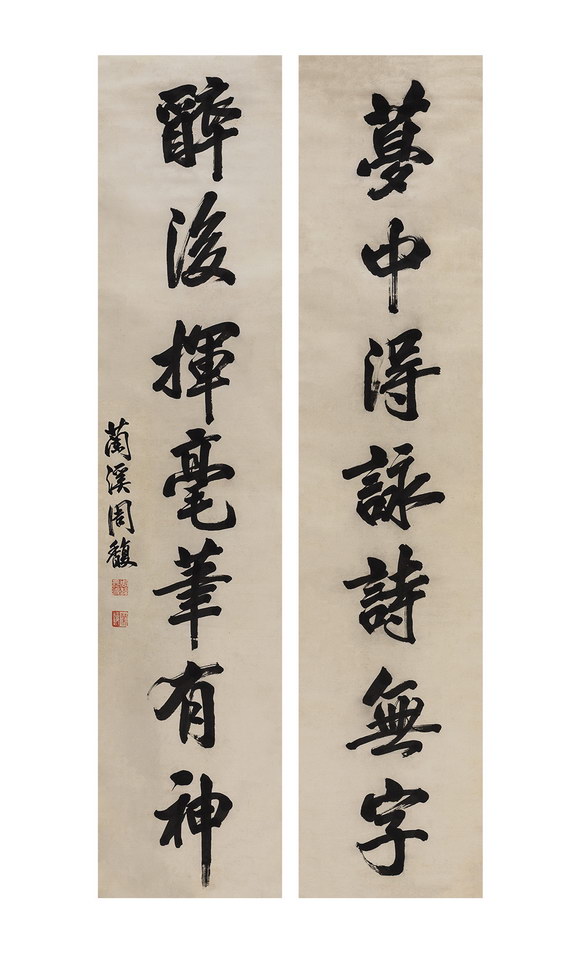 夢中得詠詩無字
醉後揮毫筆有神
蘭溪周馥